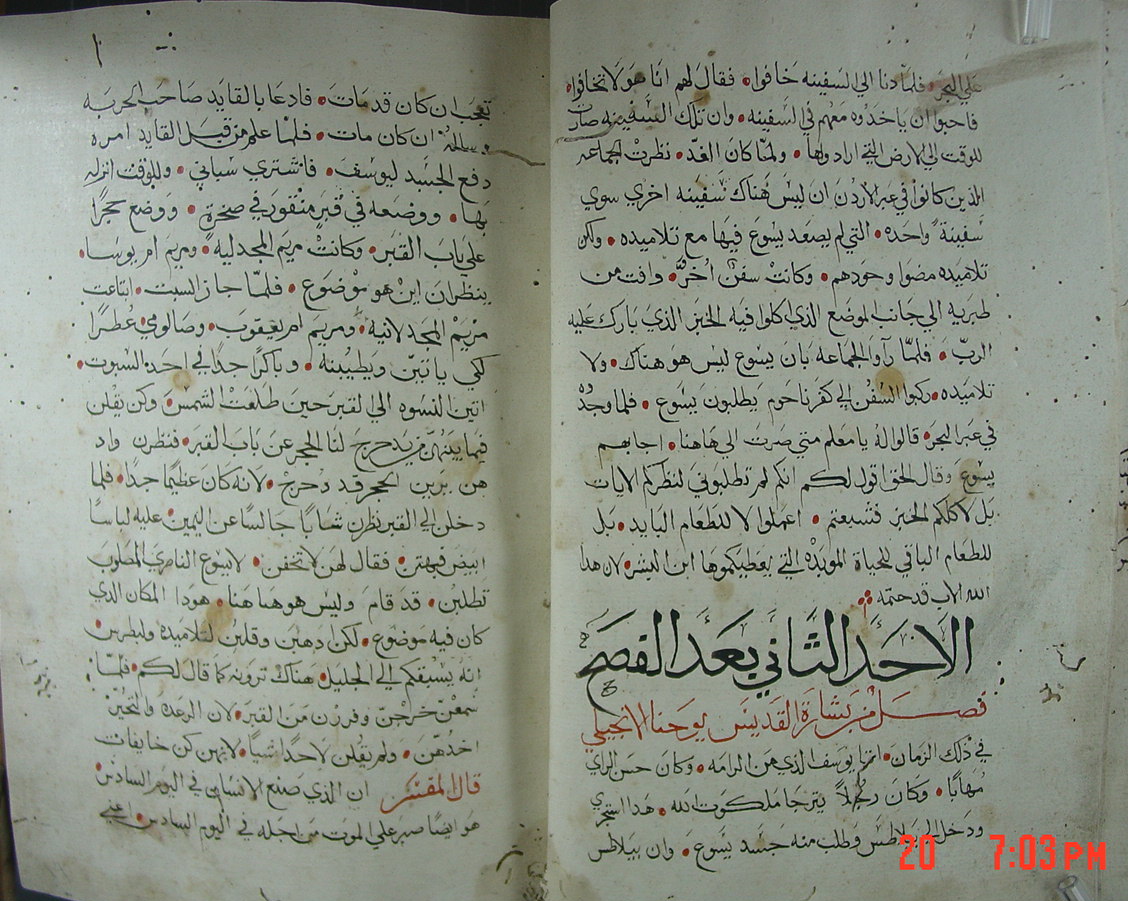 علي البحر • فلما دنا الي السفينه خافوا • فقال لهم انا هو لا تخافوا •
فاحبوا ان ياخدوه معهم في السفينه • وان تلك السفينه صارت
للوقت الي الارض التي ارادوها • ولما كان الغد • نظرت الجماعه
الذين كانوا في عبر الاردن ان ليس هناك سفينه اخري سوي
سفينة واحده • التي لم يصعد يسوع فيها مع تلاميده • ولكن
تلاميده مضوا وحودهم • وكانت سفن اخر • وافت من
طبريه الي جانب الموضع الذي اكلوا فيه الخبز الذي بارك عليه
الرب • فلما راوا الجماعه بان يسوع ليس هو هناك • ولا
تلاميده • ركبوا السفن الي كفرناحوم يطلبون يسوع • فلما وجدوه
في عبر البحر • قالوا له يا معلم متي صرت الي هاهنا • اجابهم
يسوع وقال الحق اقول لكم انكم لم تطلبوني لنظركم الايات
بل لاكلكم الخبز فشبعتم • اعملوا لا للطعام البايد • بل
للطعام الباقي للحياة الموبده التي يعطيكموها ابن البشر • لان هدا
الله الاب قد ختمه
الاحد الثاني بعد الفصح
فصل من بشارة القديس يوحنا الانجيلي
في ذلك الزمان • اتي يوسف الذي من الرامه • وكان حسن الراي
مهابا • وكان رجلا يترجا ملكوت الله • هدا استجري
ودخل الي بيلاطس وطلب منه جسد يسوع • وان بيلاطس
تعجب ان كان قد مات • فادعا بالقايد صاحب الحربه
وساله ان كان مات • فلما علم من قبل القايد امره
دفع الجسد ليوسف • فاشتري سباني • وللوقت انزله
بها • ووضعه في قبر منقور في صخرة • ووضع حجرا
علي باب القبر • وكانت مريم المجدليه • ومريم ام يوسا •
ينظران اين هو موضوع • فلما جاز السبت • ابتاعت
مريم المجدلانيه • ومريم ام يعقوب • وصالومي عطرا
لكي ياتين ويطيبنه • وباكرا جدا في احد السبوت •
اتين النسوه الي القبر حين طلعت الشمس • وكن يقلن
فيما بينهن من يدحرج لنا الحجر عن باب القبر • فنظرن واد
هن يرين الحجر قد دحرج • لانه كان عظيما جدا • فلما
دخلن الي القبر نظرن شابا جالسا عن اليمين • عليه لباسا
ابيض فبهتن • فقال لهن لا تخفن • لايسوع الناصري المصلوب
تطلبن • قد قام وليس هو هاهنا • هودا المكان الذي
كان فيه موضوع • لكن ادهبن وقلن لتلاميده ولبطرس
انه يسبقكم الي الجليل • هناك ترونه كما قال لكم • فلما
سمعن خرجن وفررن من القبر • لان الرعده والتحير
اخدهن • ولم يقلن لاحدا شيا • لانهن كن خايفات
قال المفسر ان الذي صنع الانسان في اليوم السادس
هو ايضا صبر علي الموت من اجله في اليوم السادس • اعني
20 7:03 PM